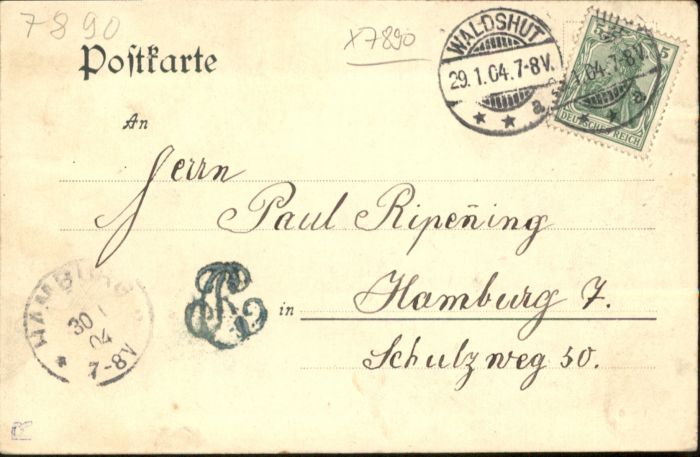 7890
x7890
Postkarte
WALDSHUT
29.1.04.7-8V.
a
5 5
1.04.7-8V.
a
DEUTSCHES REICH
An
Herrn
Paul Ripen̄ing
in Hamburg 7.
Schulzweg 50.
HAMBURG
30 1
04
7-8V